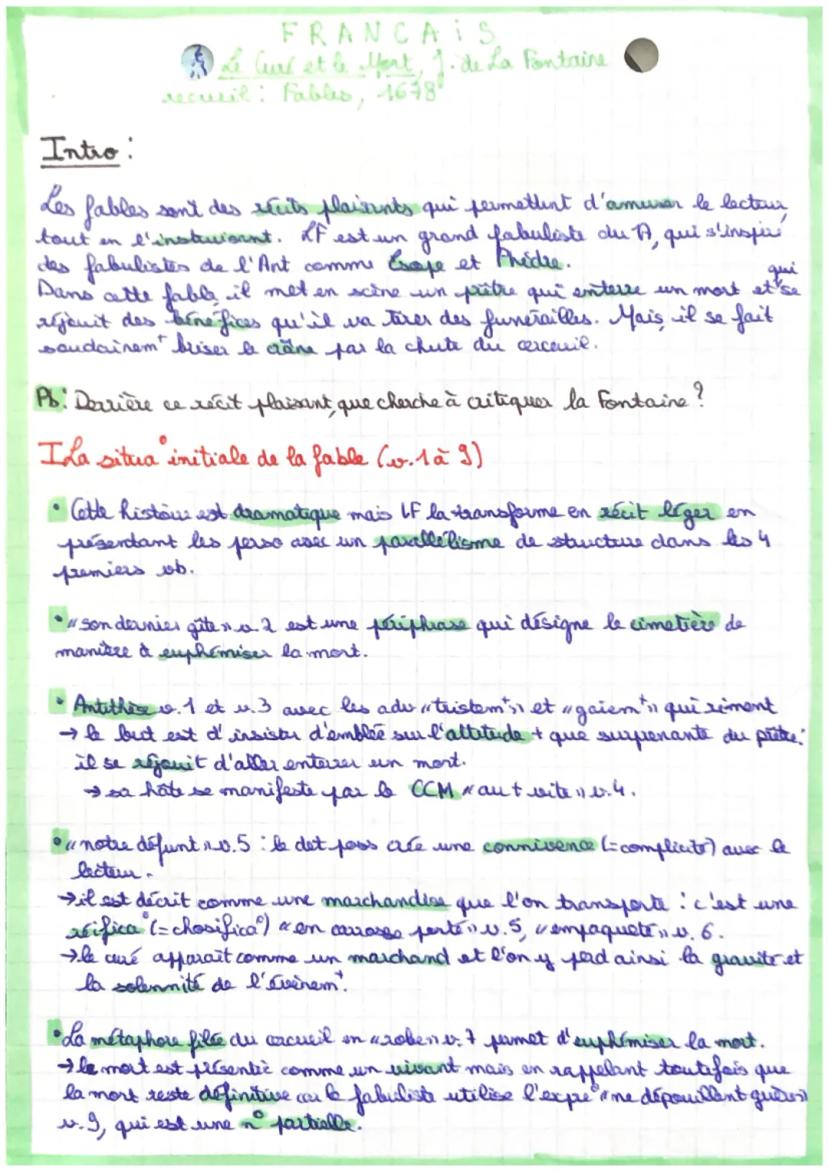 FRANCAIS
Le Curé et le Mort, J. de La Fontaine
recueil : Fables, 1678
Intro :
Les fables sont des récits plaisants qui permettent d'amuser le lecteur,
tout en l'instruisant. LF est un grand fabuliste du 17, qui s'inspire
des fabulistes de l'Ant comme Esope et Phèdre.
Dans cette fable, il met en scène un prêtre qui enterre un mort et qui se
réjouit des bénéfices qu'il va tirer des funérailles. Mais, il se fait
soudainemt briser le crâne par la chute du cercueil.
Pb : Derrière ce récit plaisant, que cherche à critiquer la Fontaine ?
I La situa° initiale de la fable (v.1 à 9)
• Cette histoire est dramatique mais LF la transforme en récit léger en
présentant les perso avec un parallélisme de structure dans les 4
premiers vb.
• « son dernier gîte » v.2 est une périphrase qui désigne le cimetière de
manière à euphémiser la mort.
• Antithèse v.1 et v.3 avec les adv « tristemt » et « gaiemt » qui riment
→ le but est d'insister d'emblée sur l'attitude + que surprenante du prêtre :
il se réjouit d'aller enterrer un mort.
→ sa hâte se manifeste par le CCM « au + vite » v.4.
• « notre défunt » v.5 : le det poss crée une connivence (= complicité) avec le
lecteur.
→ il est décrit comme une marchandise que l'on transporte : c'est une
réifica° (= chosifica°) « en carrosse porté » v.5, « empaqueté » v.6.
→ le curé apparaît comme un marchand et l'on y perd ainsi la gravité et
la solennité de l'évènemt.
• La métaphore filée du cercueil en « robe » v.7 permet d'euphémiser la mort.
→ le mort est présenté comme un vivant mais en rappelant toutefois que
la mort reste définitive car le fabuliste utilise l'expre° « ne dépouillent guère »
v.9, qui est une n° partielle.